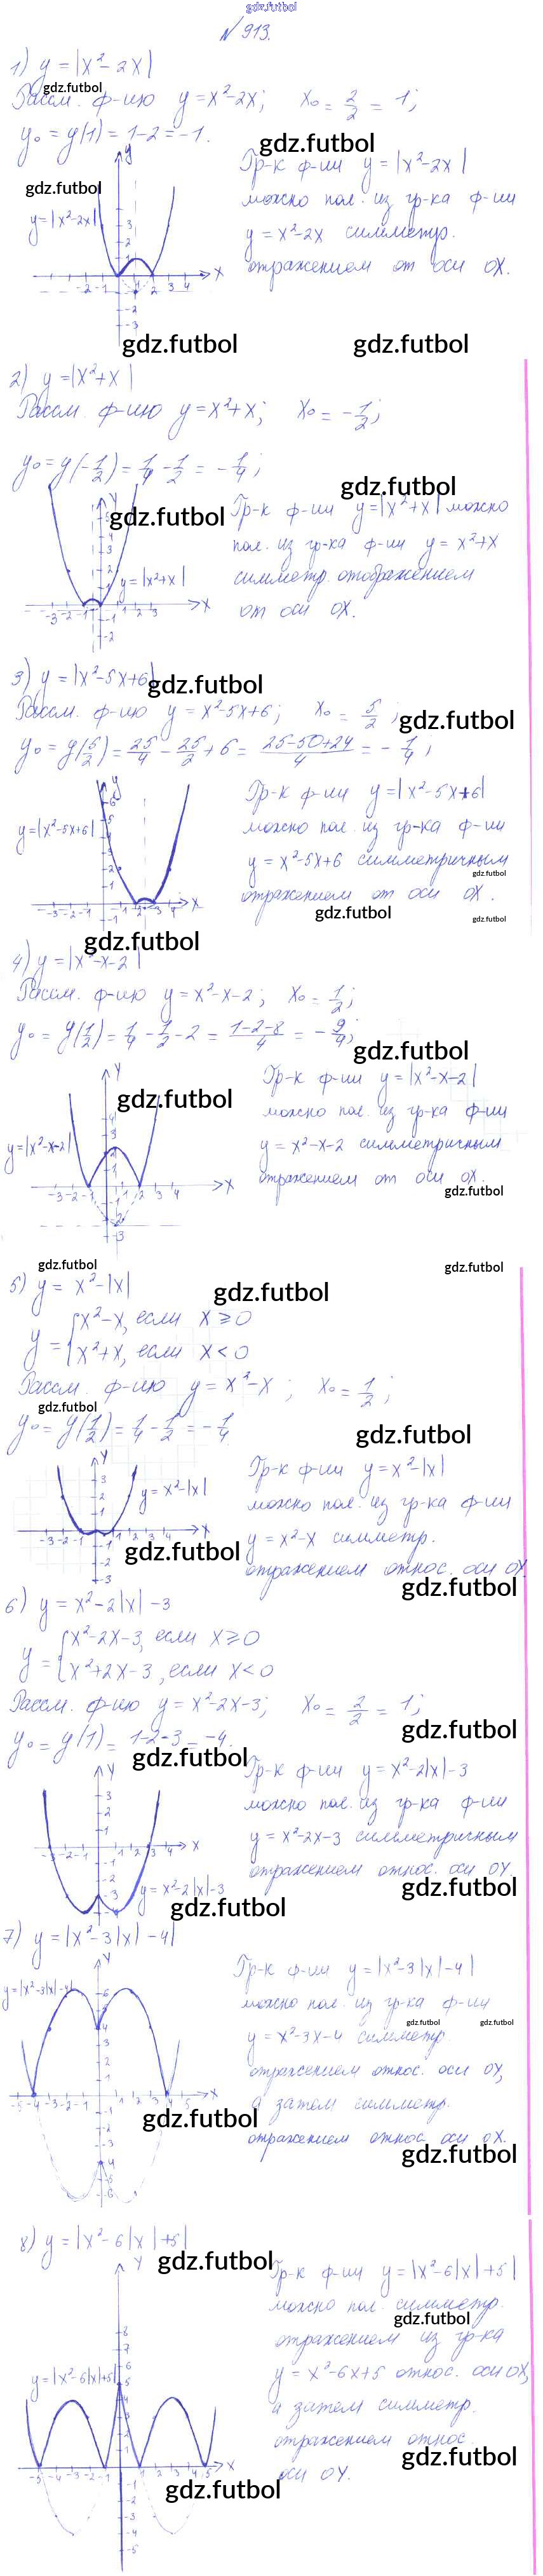 gdz.futbol
№ 913.
1) y = |x²-2x|
gdz.futbol
Рассм. ф-ию y = x²-2x; x₀ = 2/2 = 1;
y₀ = y(1) = 1-2 = -1.
gdz.futbol
Гр-к ф-ии y = |x²-2x|
можно пол. из гр-ка ф-ии
y = x²-2x симметр.
отражением от оси OX.
gdz.futbol
y = |x²-2x|
gdz.futbol gdz.futbol
2) y = |x²+x|
Рассм. ф-ию y = x²+x; x₀ = -1/2;
y₀ = y(-1/2) = 1/4 - 1/2 = -1/4;
gdz.futbol
gdz.futbol
Гр-к ф-ии y = |x²+x| можно
пол. из гр-ка ф-ии y = x²+x
симметр. отображением
от оси OX.
y = |x²+x|
3) y = |x²-5x+6|
gdz.futbol
Рассм. ф-ию y = x²-5x+6; x₀ = 5/2;
gdz.futbol
y₀ = y(5/2) = 25/4 - 25/2 + 6 = (25-50+24)/4 = -1/4;
Гр-к ф-ии y = |x²-5x+6|
можно пол. из гр-ка ф-ии
y = x²-5x+6 симметричным
gdz.futbol
отражением от оси OX.
y = |x²-5x+6|
gdz.futbol gdz.futbol
gdz.futbol
4) y = |x²-x-2|
Рассм. ф-ию y = x²-x-2; x₀ = 1/2;
y₀ = y(1/2) = 1/4 - 1/2 - 2 = (1-2-8)/4 = -9/4;
gdz.futbol
Гр-к ф-ии y = |x²-x-2|
gdz.futbol
можно пол. из гр-ка ф-ии
y = x²-x-2 симметричным
отражением от оси OX.
y = |x²-x-2|
gdz.futbol
gdz.futbol gdz.futbol
5) y = x²-|x|
gdz.futbol
y = { x²-x, если x ≥ 0
x²+x, если x < 0
Рассм. ф-ию y = x²-x; x₀ = 1/2;
gdz.futbol
y₀ = y(1/2) = 1/4 - 1/2 = -1/4
gdz.futbol
Гр-к ф-ии y = x²-|x|
можно пол. из гр-ка ф-ии
y = x²-x симметр.
отражением относ. оси OX.
y = x²-|x|
gdz.futbol
gdz.futbol
6) y = x²-2|x|-3
y = { x²-2x-3, если x ≥ 0
x²+2x-3, если x < 0
Рассм. ф-ию y = x²-2x-3; x₀ = 2/2 = 1;
gdz.futbol
y₀ = y(1) = 1-2-3 = -4.
gdz.futbol
Гр-к ф-ии y = x²-2|x|-3
можно пол. из гр-ка ф-ии
y = x²-2x-3 симметричным
отражением относ. оси OY.
gdz.futbol
y = x²-2|x|-3
gdz.futbol
7) y = |x²-3|x|-4|
Гр-к ф-ии y = |x²-3|x|-4|
можно пол. из гр-ка ф-ии
gdz.futbol gdz.futbol
y = x²-3x-4 симметр.
отражением относ. оси OY,
а затем симметр.
отражением относ. оси OX.
y = |x²-3|x|-4|
gdz.futbol
gdz.futbol
8) y = |x²-6|x|+5|
gdz.futbol
Гр-к ф-ии y = |x²-6|x|+5|
можно пол. симметр.
gdz.futbol
отражением из гр-ка
y = x²-6x+5 относ. оси OX,
а затем симметр.
отражением относ.
оси OY.
y = |x²-6|x|+5|
gdz.futbol
gdz.futbol